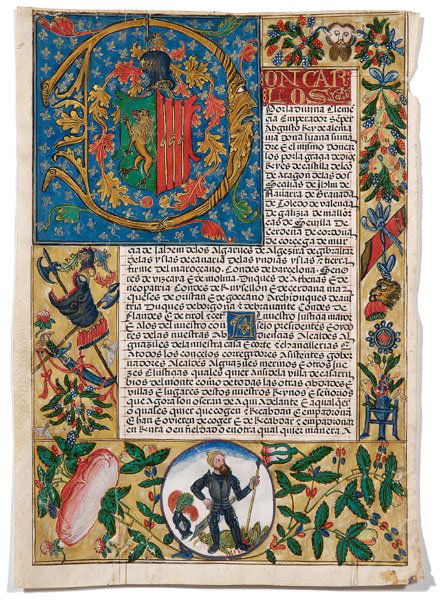 DON CAR
LOS
Por la divina clemē
cia emperador sēper
augusto Rey de alema
nia doña Juana su ma
dre e el mismo don car
los por la gracia de dios
Reyes de castilla de leō
de aragon de las dos
secilias de Jhlm de
navarra de granada
de toledo de valencia
de galizia de mallor
cas de sevilla de
cerdeña de cordova
de corcega de mur
cia de Jahem de los algarves de algezira de gibraltar
de las yslas de canaria de las yndias yslas e tierra
firme del mar oceano condes de barcelona señō
res de vizcaya e de molina duques de athenas e de
neopatria condes de Ruysellon e de cerdania mar
queses de oristan e de gociano archiduques de aus
tria duques de borgoña e de bravante condes de
flandes e de tirol
a los del nuestro consejo presidentes e oydo
res de las nuestras abdiencias alcaldes al
guaziles de la nuestra casa e corte e chancillerias e a
todos los concejos corregidores asistentes gober
nadores alcaldes alguaziles merinos e otros jue
ces e justicias quales quier ansi de la villa de
como de todas las otras cibdades e
villas e lugares de los nuestros Reynos e señorios
que agora son o seran de aqui adelante e a qualquier
o quales quier que cogen e Recabdan e
e han o ovieren de coger e de Recabdar e
en Renta o en fieldad o en otra qual quier manera a